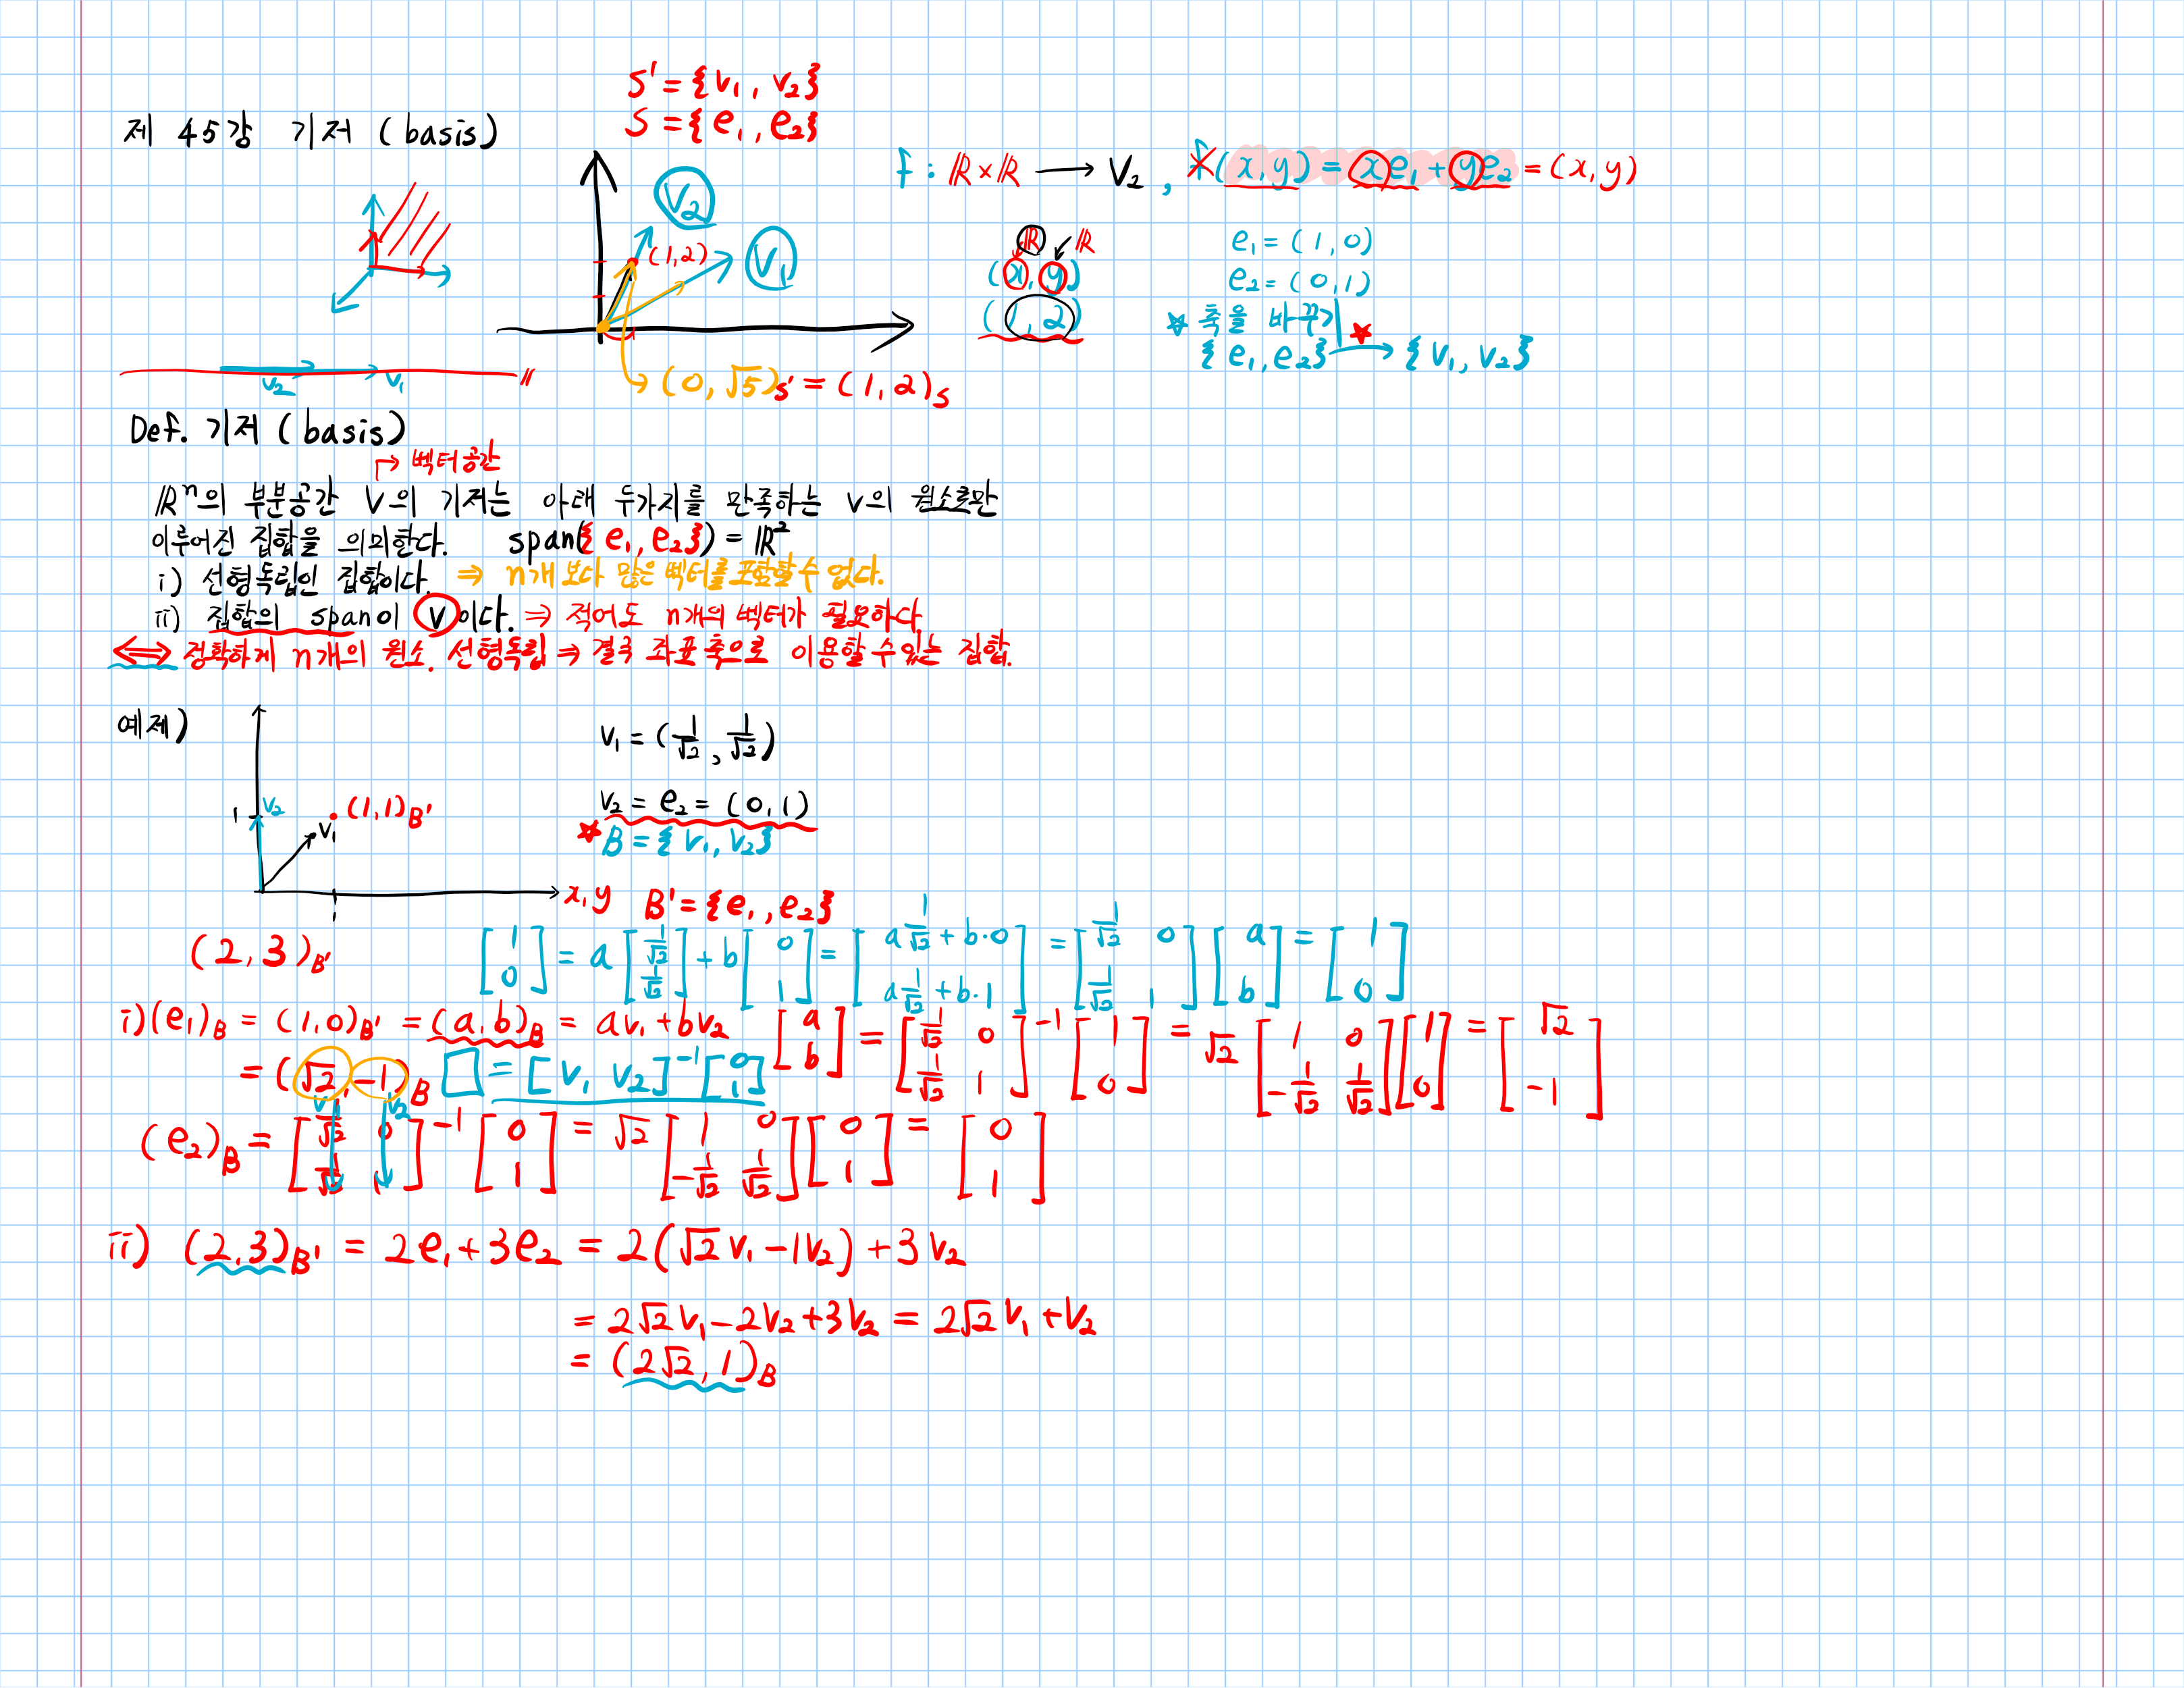 S' = { v₁, v₂ }
S = { e₁, e₂ }
제 45강 기저 (basis)
V₂
V₁
(1,2)
(0, √5)s' = (1,2)s
v₂ v₁
f : ℝ×ℝ ⟶ V₂ , f(x,y) = xe₁ + ye₂ = (x,y)
ℝ ℝ
(x, y)
(1, 2)
e₁ = (1,0)
e₂ = (0,1)
☆ 축을 바꾸기
{ e₁, e₂ } ⟶ { v₁, v₂ }
Def. 기저 (basis)
↱ 벡터공간
ℝⁿ의 부분공간 V의 기저는 아래 두가지를 만족하는 V의 원소로만
이루어진 집합을 의미한다. span({ e₁, e₂ }) = ℝ²
i) 선형독립인 집합이다. ⇒ n개 보다 많은 벡터를 포함할 수 없다.
ii) 집합의 span이 V이다. ⇒ 적어도 n개의 벡터가 필요하다.
⟺ 정확하게 n개의 원소. 선형독립 ⇒ 결국 좌표 축으로 이용할 수 있는 집합.
예제)
1 v₂ v₁ (1,1)B'
1
x,y
v₁ = (1/√2, 1/√2)
v₂ = e₂ = (0,1)
☆ B = { v₁, v₂ }
B' = { e₁, e₂ }
(2,3)B'
[1 0] = a[1/√2 1/√2] + b[0 1] = [a 1/√2 + b·0 a 1/√2 + b·1] = [1/√2 0 1/√2 1][a b] = [1 0]
i) (e₁)B = (1,0)B' = (a,b)B = av₁ + bv₂ [a b] = [1/√2 0 1/√2 1]⁻¹[1 0] = √2[1 0 -1/√2 1/√2][1 0] = [√2 -1]
= (√2, -1)B □ = [v₁ v₂]⁻¹[0 1]
v₁ v₂
(e₂)B = [1/√2 0 1/√2 1]⁻¹[0 1] = √2[1 0 -1/√2 1/√2][0 1] = [0 1]
ii) (2,3)B' = 2e₁ + 3e₂ = 2(√2 v₁ - 1v₂) + 3v₂
= 2√2 v₁ - 2v₂ + 3v₂ = 2√2 v₁ + v₂
= (2√2, 1)B